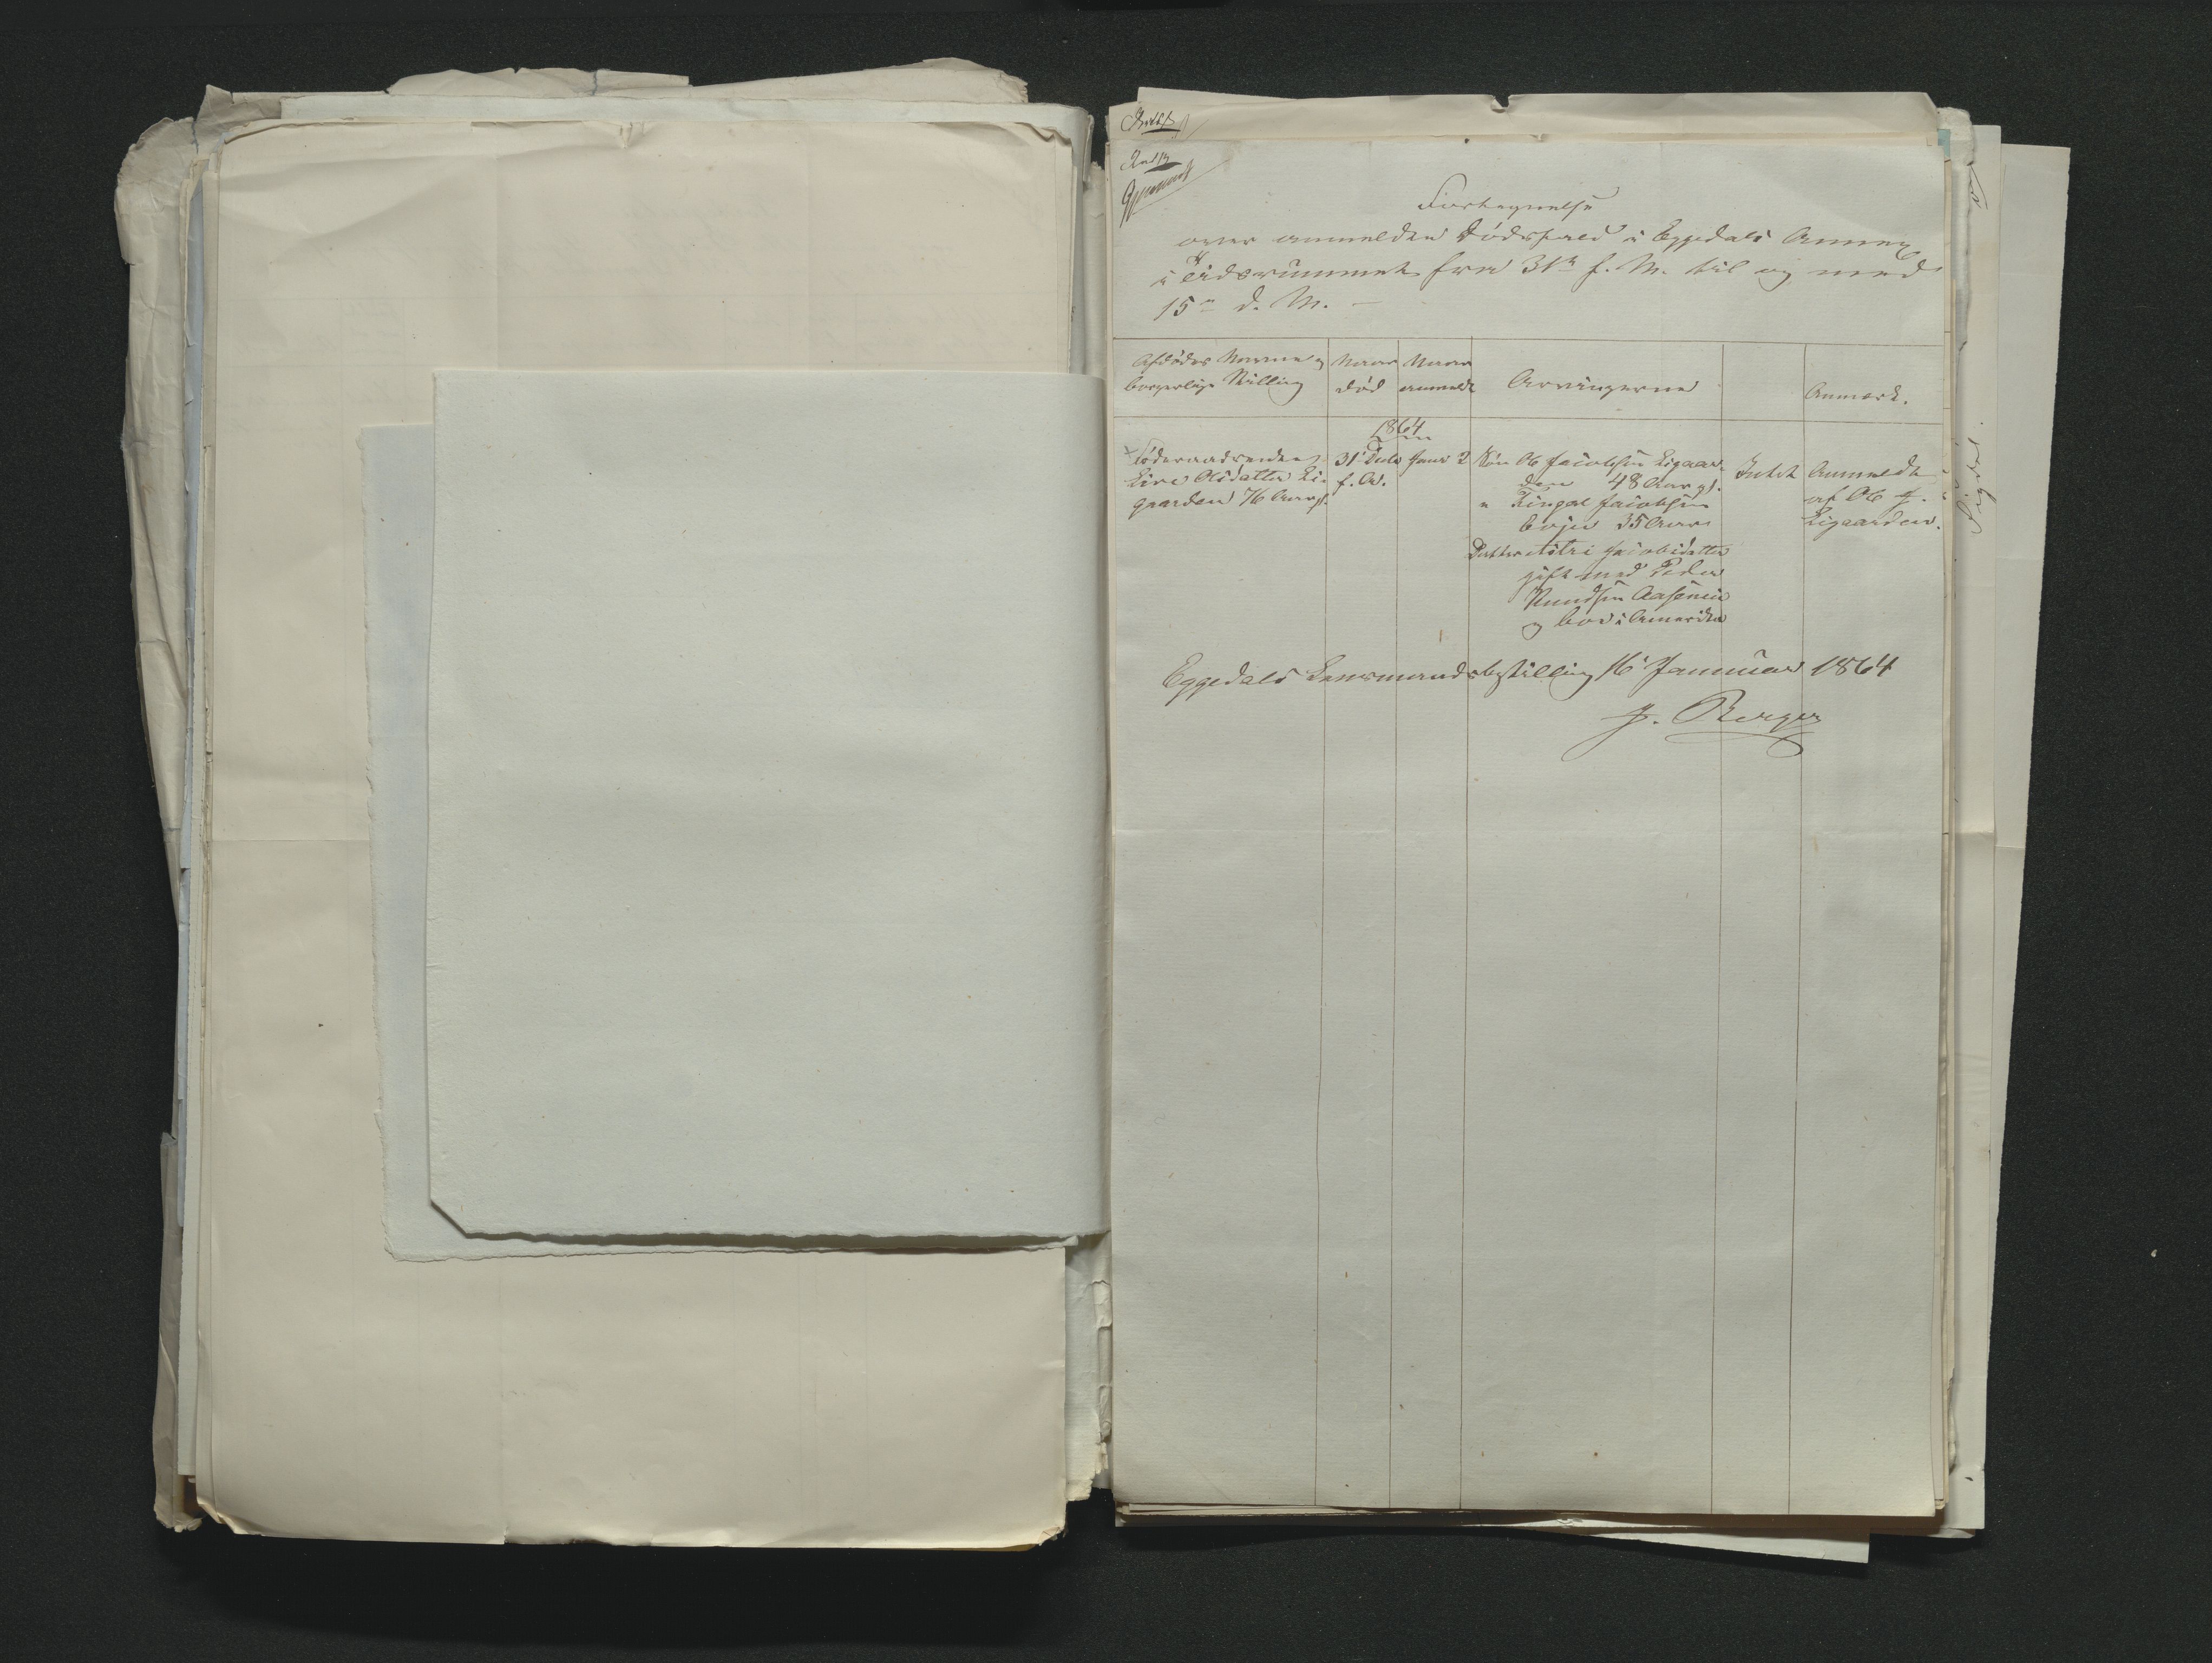 Fortegnelse
over anmeldte Dødsfald i Eggedals Annex
i Tidsrummet fra 31te f. M. til og med
15de d. M. –
Afdødes Navne og
borgerlige Stilling
Naar
død
Naar
anmeldt
Arvingerne
Anmærk.
1864
Føderaadsenken
Live Olsdatter Li-
gaarden 76 Aar gl.
31 Decb
f. A.
Janr 2
Søn Ole Jacobsen Ligaar-
den 48 Aar gl.
" Tingel Jacobsen
35 Aar
Datter Astri Jacobsdatter
gift med Peder
Knudsen Aasenein
og boer i Amerika
Intet
Anmeldt
af Ole J.
Ligaarden.
Eggedals Lensmandsbestilling 16 Januar 1864
J. Berger